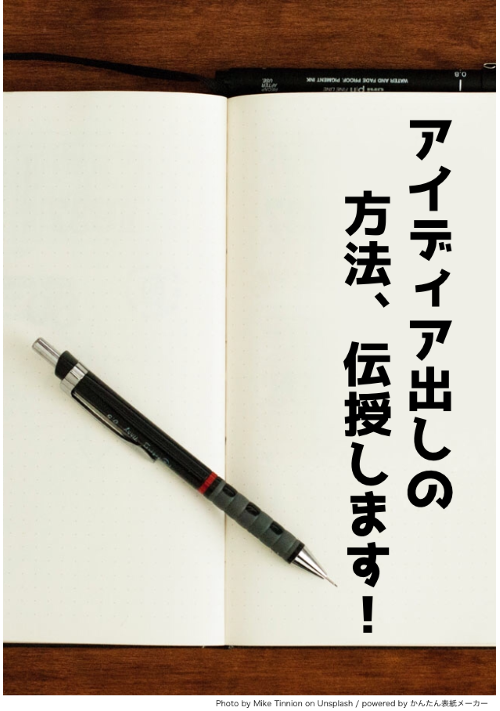 アイディア出しの
方法、伝授します！
WATER AND FADE PROOF, PIGMENT INK
0.8
Photo by Mike Tinnion on Unsplash / powered by かんたん表紙メーカー